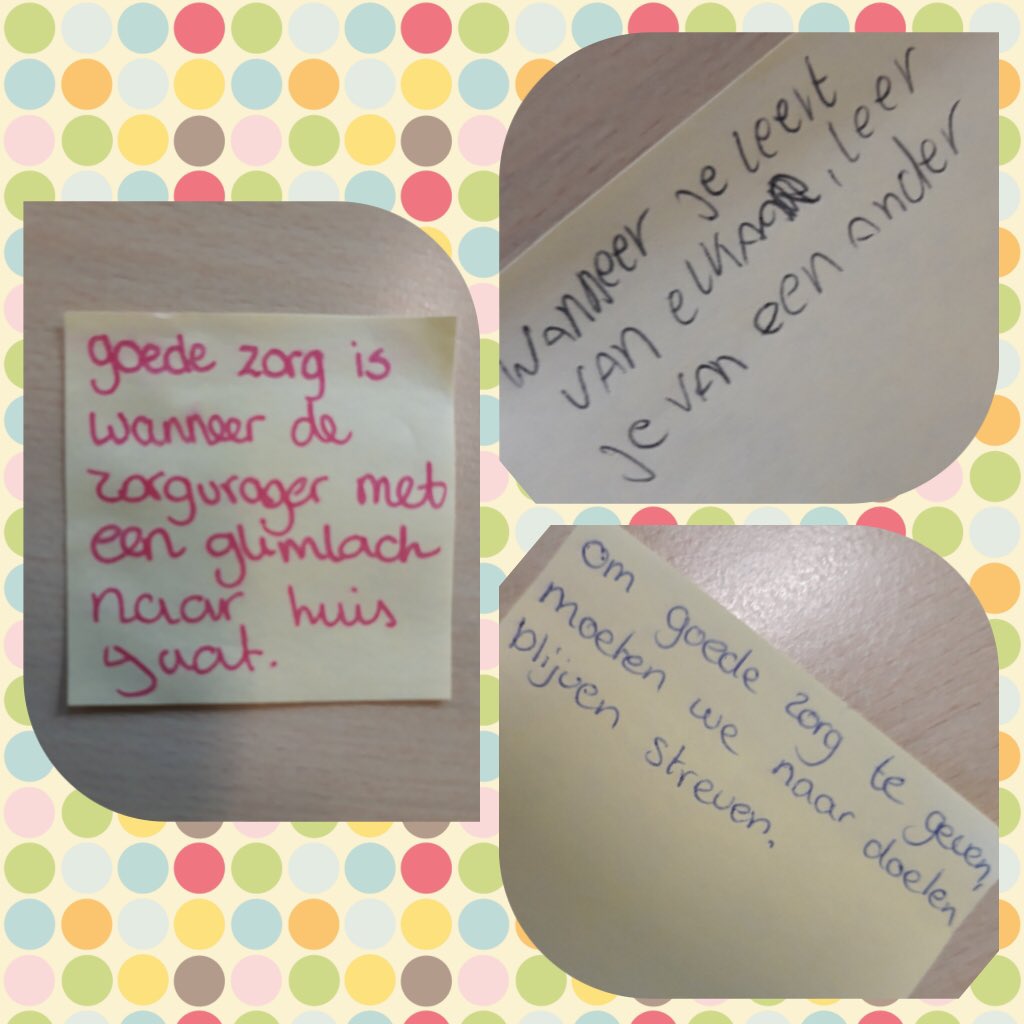 goede zorg is
wanneer de
zorgvrager met
een glimlach
naar huis
gaat.
Wanneer je leert
van elkaar, leer
je van een ander
Om goede zorg te geven,
moeten we naar doelen
blijven streven.